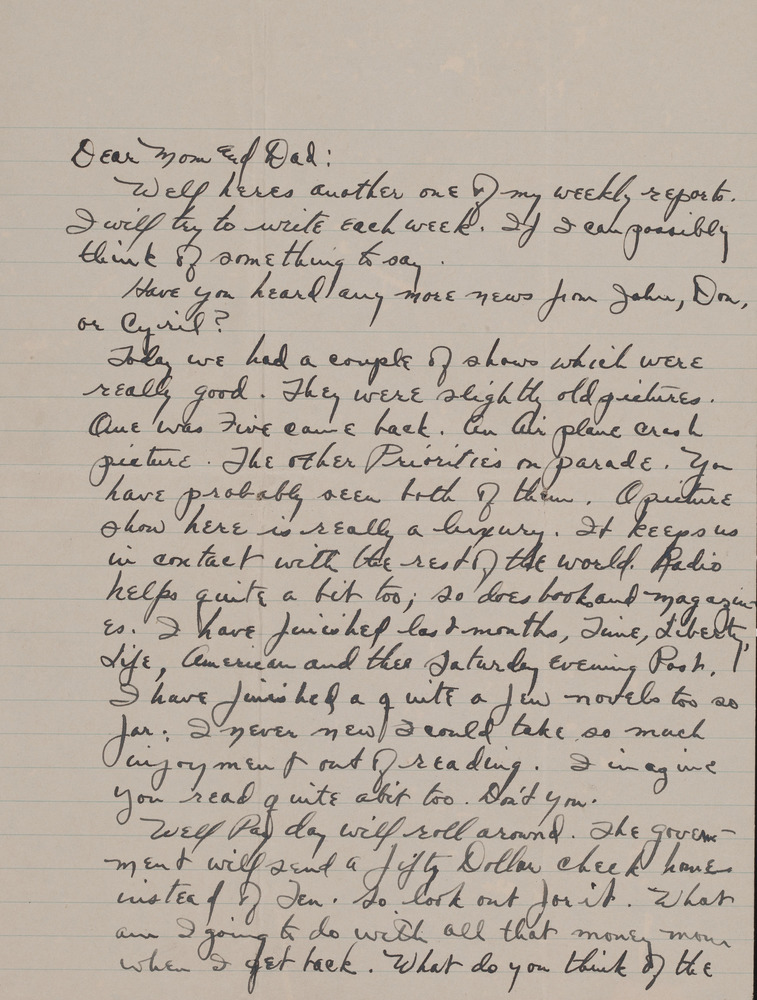 Dear Mom and Dad:
Well heres another one of my weekly reports.
I will try to write each week. If I can possibly
think of something to say.
Have you heard any more news from John, Don,
or Cyril?
Today we had a couple of shows which were
really good. They were slightly old pictures.
One was Five came back. An Air plane crash
picture. The other Priorities on parade. You
have probably seen both of them. A picture
show here is really a luxury. It keeps us
in contact with the rest of the world. Radio
helps quite a bit too; so does books and magazin-
es. I have finished last months, Time, Liberty,
Life, American and thee Saturday Evening Post.
I have finished a quite a few novels too so
far. I never new I could take so much
injoyment out of reading. I imagine
you read quite abit too. Don't you.
Well Pay day will roll around. The govern-
ment will send a fifty Dollar check home
instead of Ten. So look out for it. What
am I going to do with all that money mom
when I get back. What do you think of the